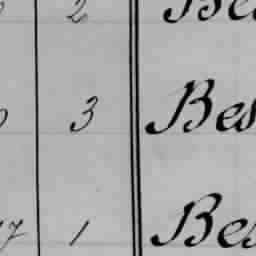 2 Be
3 Bes
7 1 Bes